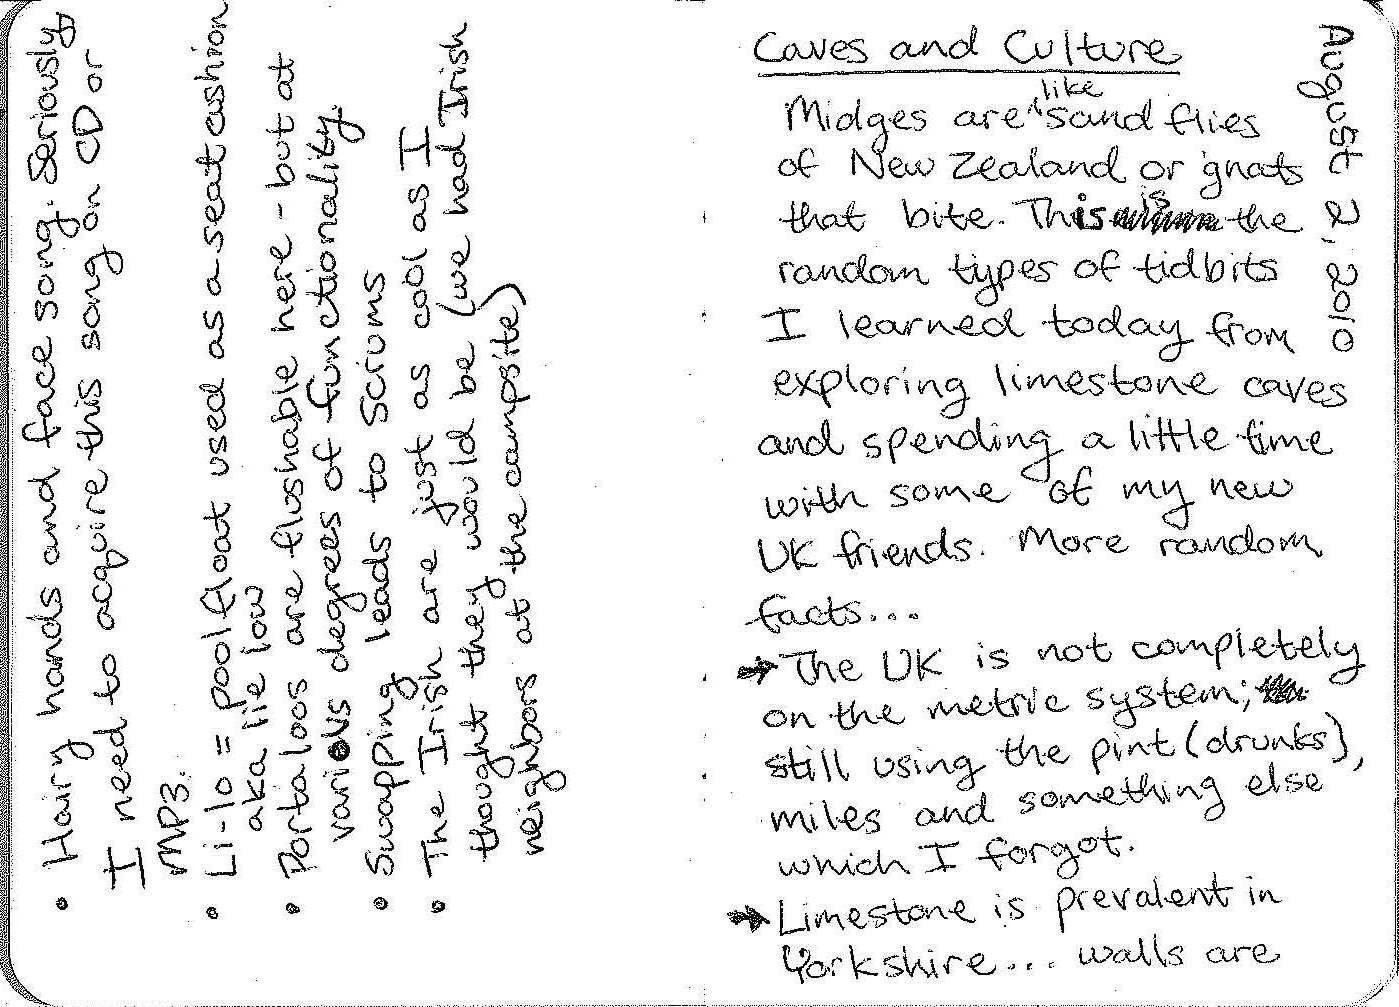 • Hairy hands and face song. Seriously,
I need to acquire this song on CD or
MP3.
• Li-lo = pool float used as a seat cushion
aka lie low
• Portaloos are flushable here - but at
various degrees of functionality.
• Swapping leads to Scrums
• The Irish are just as cool as I
thought they would be (we had Irish
neighbors at the campsite)
August 2, 2010
Caves and Culture
Midges are like sand flies
of New Zealand or gnats
that bite. This is the
random types of tidbits
I learned today from
exploring limestone caves
and spending a little time
with some of my new
UK friends. More random
facts...
→ The UK is not completely
on the metric system;
still using the pint (drunks),
miles and something else
which I forgot.
→ Limestone is prevalent in
Yorkshire... walls are